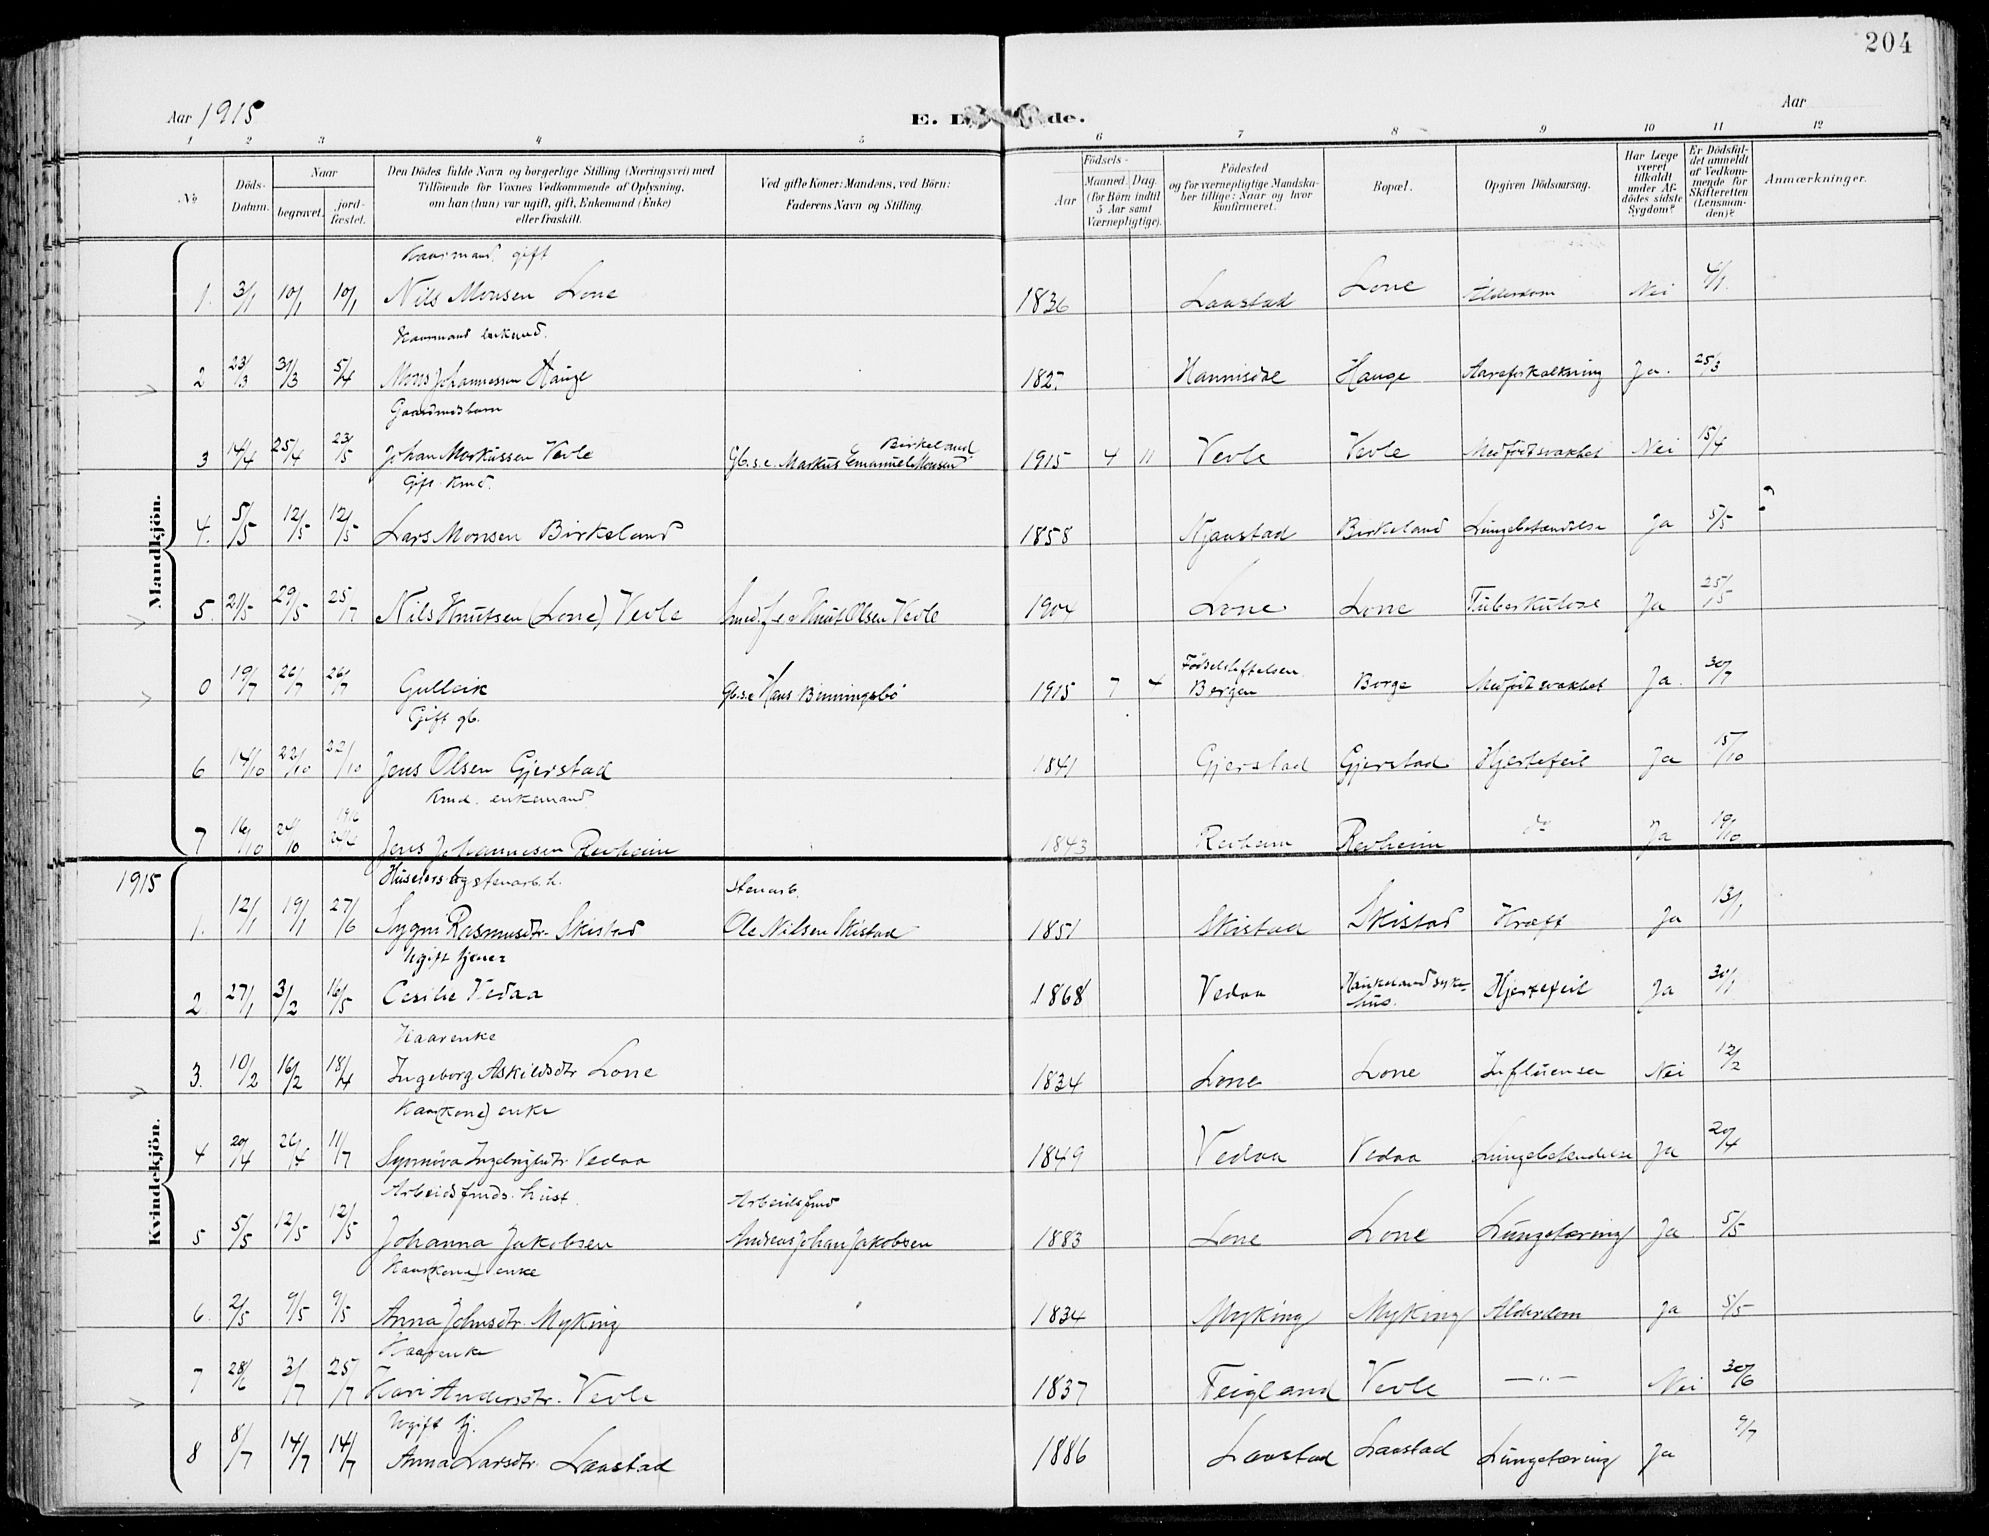 204
Aar 1915
E. D de.
Aar
1 2 3 4 5 6 7 8 9 10 11 12
No
Döds-Datum.
Naar
begravet.
jord-fæstet.
Den Dödes fulde Navn og borgerlige Stilling (Næringsvei) med
Tilföiende for Voxnes Vedkommende af Oplysning,
om han (hun) var ugift, gift, Enkemand (Enke)
eller fraskilt.
Ved gifte Koner: Mandens, ved Börn:
Faderens Navn og Stilling.
Födsels-
Aar
Maaned. Dag.
(for Börn indtil
5 Aar samt
Værnepligtige).
Födested
og for værnepligtige Mandska-
ber tillige: Naar og hvor
konfirmeret.
Bopæl.
Opgiven Dödsaarsag.
Har Læge
været
tilkaldt
under Af-
dödes sidste
Sygdom?
Er Dödsfal-
det anmeldt
af Vedkom-
mende for
Skifteretten
(Lensman-
den)?
Anmærkninger.
Mandkjön.
Kaarmand gift
1. 3/1 10/1 10/1 Nils Monsen Lone 1836 Laastad Lone Alderdom Nei 4/1.
Kaarmand enkemd.
2 23/3 31/3 5/4 Mons Johannessen Hauge 1827 Hannisdal Hauge Aareforkalkning Ja. 25/3
Gaardmdsbarn
3 14/4 25/4 23/5 Johan Markussen Vevle Gb.s.e. Markus Emanuel Monsen Birkeland 1915 4 11 Vevle Vevle Medfödt svakhet Nei 15/4
Gift Kmd.
4. 5/5 12/5 12/5 Lars Monsen Birkeland 1858 Njaastad Birkeland Lungebetændelse Ja 5/5 ?
5. 21/5 29/5 25/7 Nils Knutsen (Lone) Vevle Knut Olsen Vevle 1904 Lone Lone Tuberkulose Ja 25/5
0 19/7 26/7 26/7 Gulleik Gb.s.e Hans Binningsbö 1915 7 4 Födselstiftelsen Bergen Borge Medfödt svakhet Ja. 30/7
Gift gb.
6 14/10 22/10 22/10 Jens Olsen Gjerstad 1841 Gjerstad Gjerstad Hjertefeil Ja 15/10
Kmd. enkemand
7 16/10 24/10 1916 Jens Johannesen Revheim 1843 Revheim Revheim do Ja 19/10
1915
Kvindekjön.
stenarb. h. stenarb.
1. 12/1 19/1 27/6 Sygni Rasmusdtr. Skistad Ole Nilsen Skistad 1851 Skistad Skistad Kræft Ja 13/1
Ugift tjener
2 27/1 3/2 16/5 Cecilie Vedaa 1868 Vedaa Haukeland syke-hus. Hjertefeil Ja 30/1
Kaarenke
3. 10/2 16/2 18/4 Ingeborg Askildsdtr Lone 1834 Lone Lone Influensa Nei 12/2
Kaar(kone) enke
4 20/4 26/4 11/7 Synnöva Vedaa 1849 Vedaa Vedaa Lungebetændelse Ja 20/4
Arbeidsfmds. hust. Arbeidsfmd
5 5/5 12/5 12/5 Johanna Jakobsen Andreas Johan Jakobsen 1883 Lone Lone Lungetæring Ja 5/5
Kaar(kone) enke
6. 2/5 9/5 9/5 Anna Johnsdtr. Myking 1834 Myking Myking Alderdom Ja 5/5
Kaarenke
7 28/6 3/7 25/7 Kari Andersdtr. Vevle 1837 Teigland Vevle —"— Nei 30/6
Ugift tj.
8 8/7 14/7 14/7 Anna Larsdtr. Laastad 1886 Laastad Laastad Lungetæring Ja 9/7